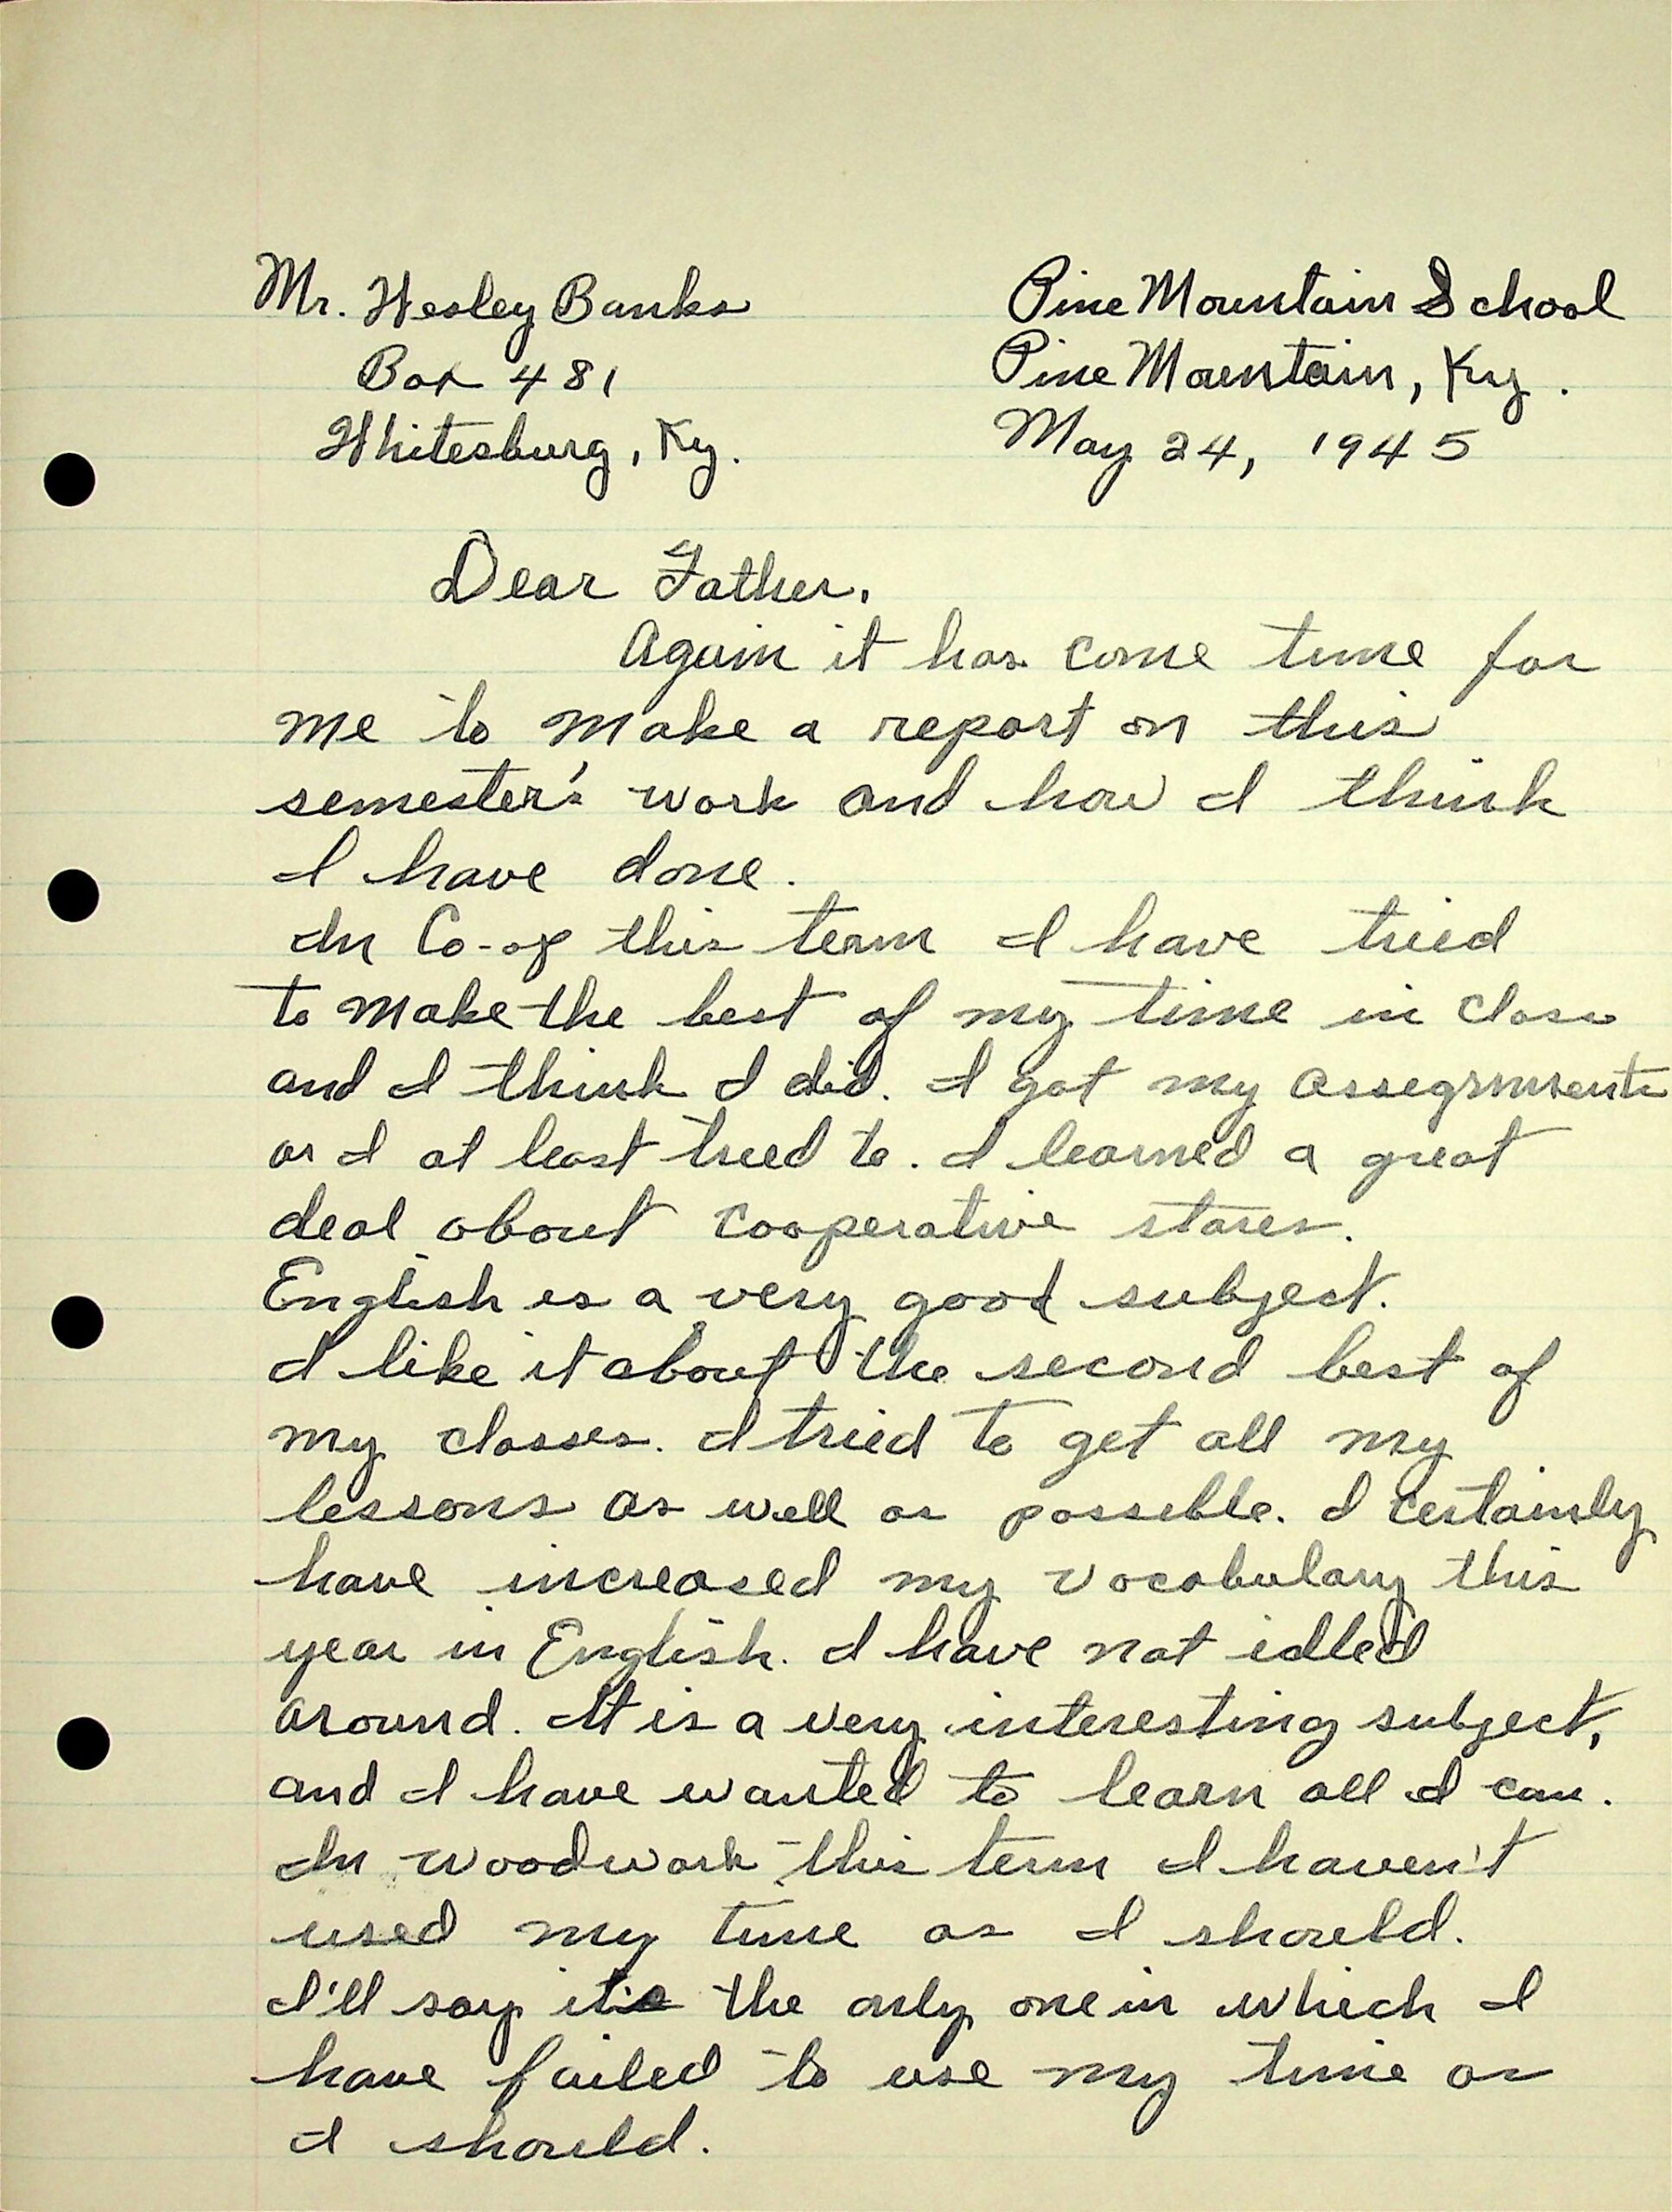 Mr. Wesley Banks
Box 481
Whitesburg, Ky.
Pine Mountain School
Pine Mountain, Ky.
May 24, 1945
Dear Father,
Again it has come time for
me to make a report on this
semester's work and how I think
I have done.
In Co-op this term I have tried
to make the best of my time in class
and I think I did. I got my assegnments
or I at least tried to. I learned a great
deal about cooperative stores.
English is a very good subject.
I like it about the second best of
my classes. I tried to get all my
lessons as well as possible. I certainly
have increased my vocabulary this
year in English. I have not idled
around. It is a very interesting subject,
and I have wanted to learn all I can.
In woodwork this term I haven't
used my time as I should.
I'll say it's the only one in which I
have failed to use my time as
I should.